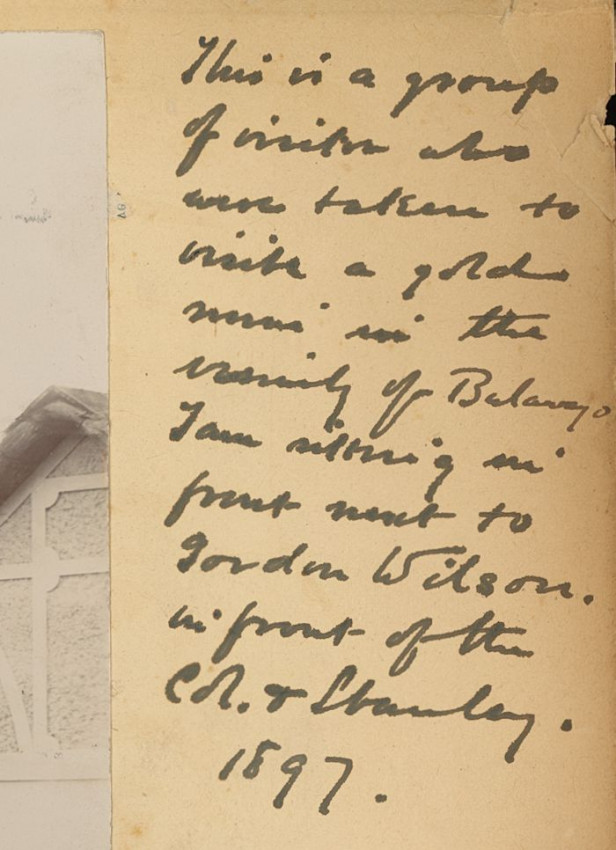 This is a group
of visitors who
were taken to
visit a gold
mine in the
vicinity of Bulawayo
I am sitting in
front next to
Gordon Wilson.
in front of the
Col. & Stanley.
1897.